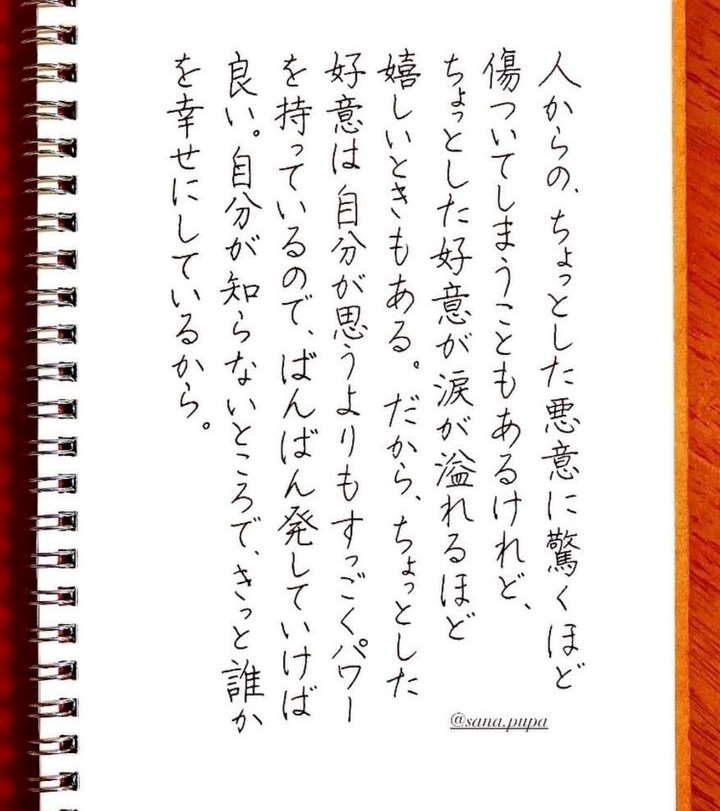 人からの、ちょっとした悪意に驚くほど
傷ついてしまうこともあるけれど、
ちょっとした好意が涙が溢れるほど
嬉しいときもある。だから、ちょっとした
好意は自分が思うよりもすっごくパワー
を持っているので、ばんばん発していけば
良い。自分が知らないところで、きっと誰か
を幸せにしているから。
@sana.pupa